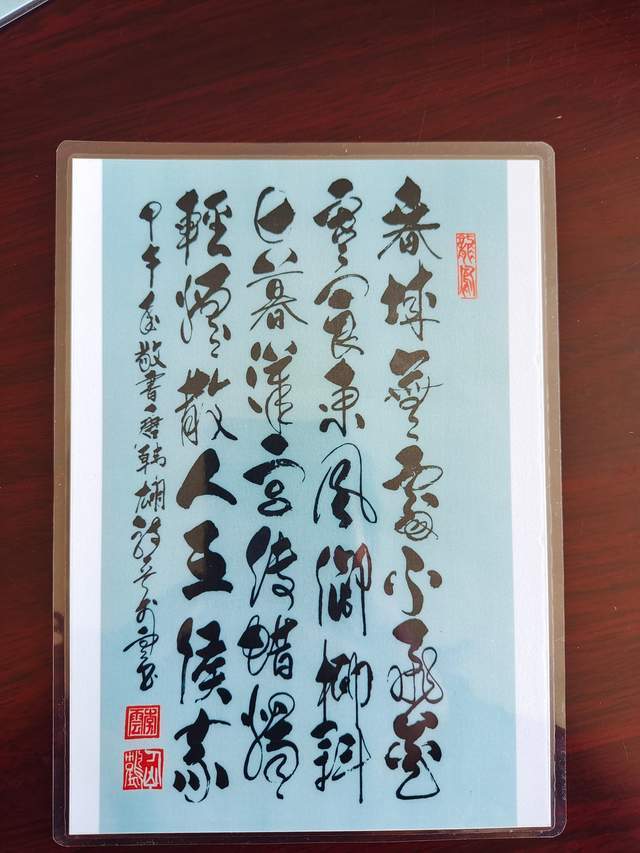 春城無處不飛花
寒食東風御柳斜
日暮漢宮傳蜡燭
輕煙散入五侯家
甲午年敬書唐韓翃詩